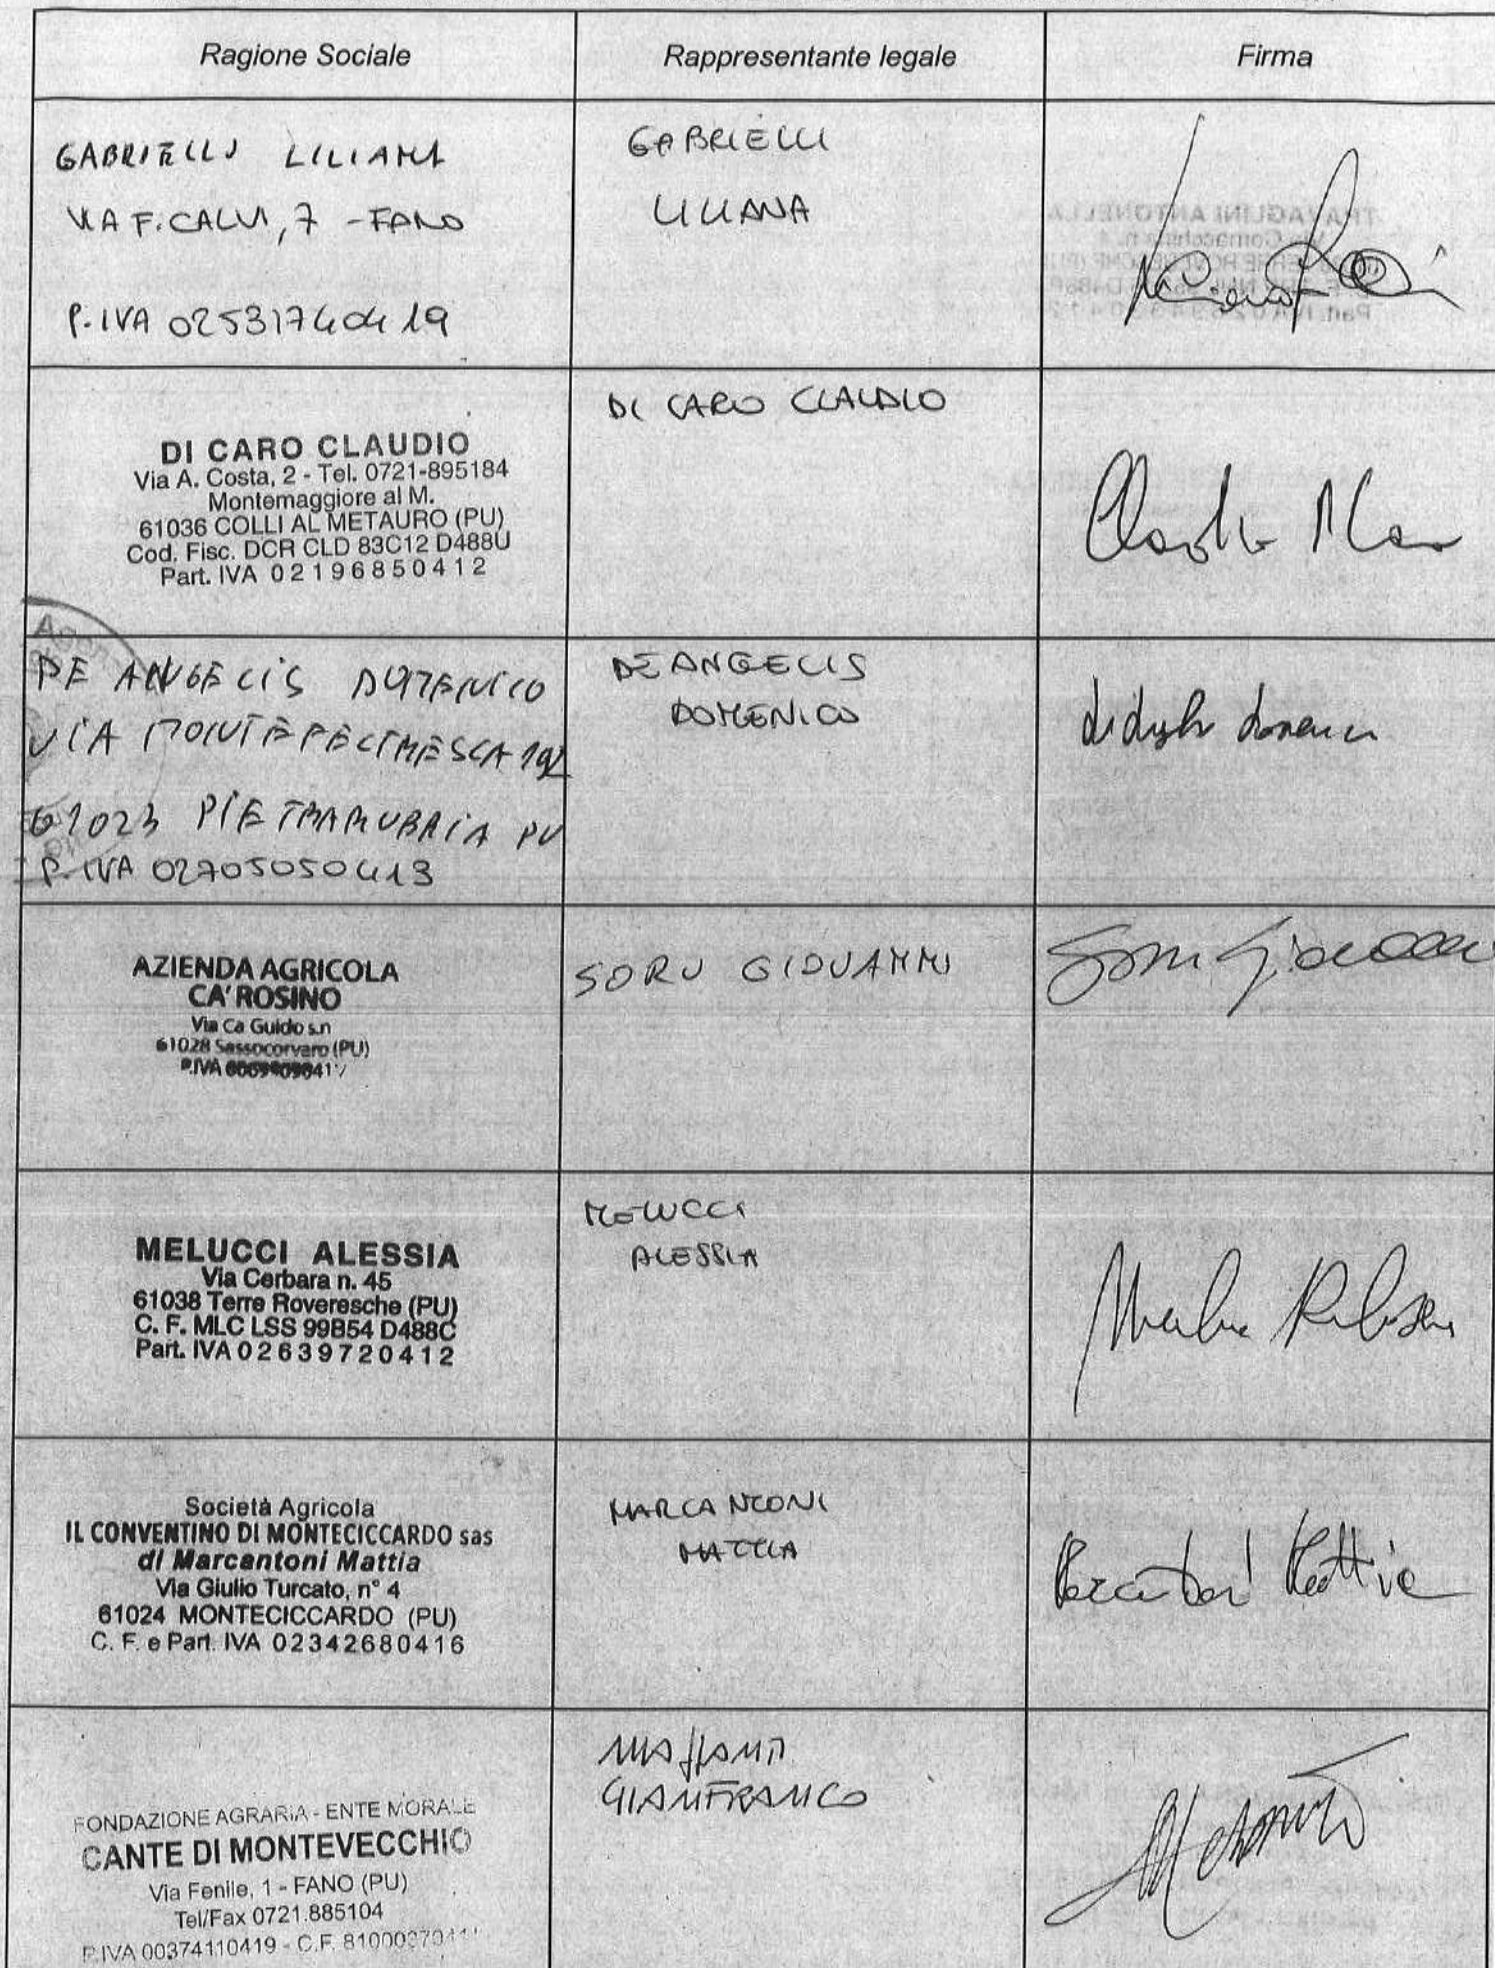 Ragione Sociale
Rappresentante legale
Firma
GABRIELLI LILIANA
VIA F. CALVI, 7 - FANO
P. IVA 02531740419
GABRIELLI
LILIANA
DI CARO CLAUDIO
Via A. Costa, 2 - Tel. 0721-895184
Montemaggiore al M.
61036 COLLI AL METAURO (PU)
Cod. Fisc. DCR CLD 83C12 D488U
Part. IVA 02196850412
DI CARO CLAUDIO
DE ANGELIS DOMENICO
VIA MONTEFELTRESCA 192
61023 PIETRARUBBIA PU
P. IVA 02705050413
DE ANGELIS
DOMENICO
AZIENDA AGRICOLA
CA' ROSINO
Via Ca Guido s.n
61028 Sassocorvaro (PU)
P.IVA
SORU GIOVANNI
Soru Giovanni
MELUCCI ALESSIA
Via Cerbara n. 45
61038 Terre Roveresche (PU)
C. F. MLC LSS 99B54 D488C
Part. IVA 02639720412
MELUCCI
ALESSIA
Società Agricola
IL CONVENTINO DI MONTECICCARDO sas
di Marcantoni Mattia
Via Giulio Turcato, n° 4
61024 MONTECICCARDO (PU)
C. F. e Part. IVA 02342680416
MARCANTONI
MATTIA
Marcantoni Mattia
FONDAZIONE AGRARIA - ENTE MORALE
CANTE DI MONTEVECCHIO
Via Fenile, 1 - FANO (PU)
Tel/Fax 0721.885104
P.IVA 00374110419 - C.F.
GIANFRANCO